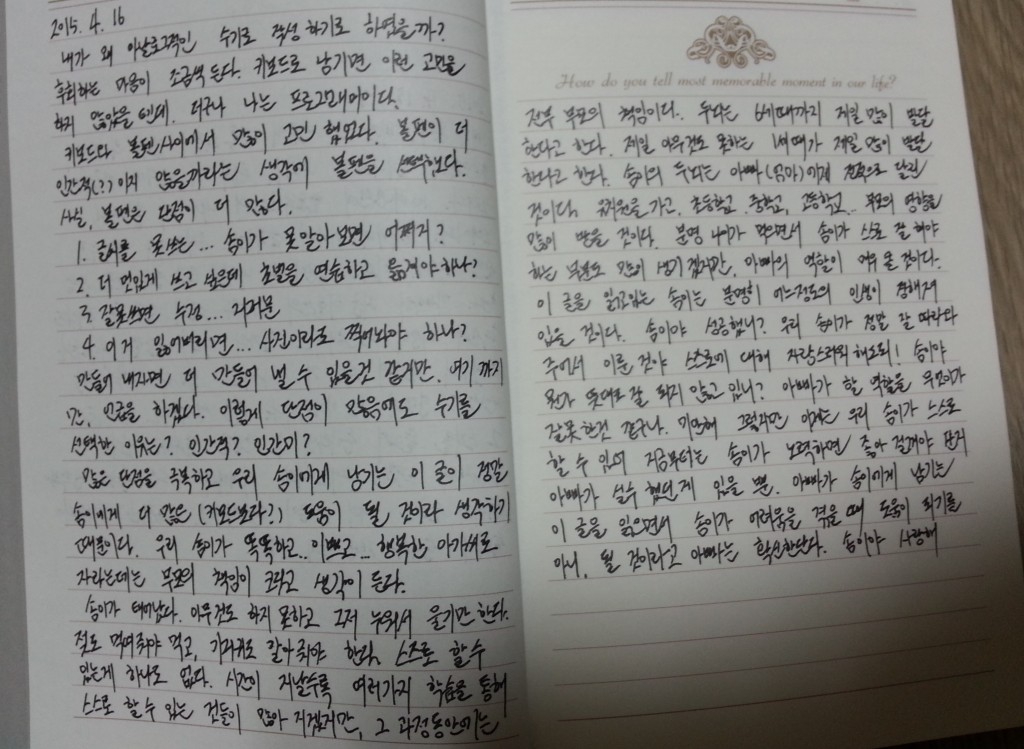 2015. 4. 16
내가 왜 아날로그적인 수기로 작성하기로 하였을까?
후회하는 마음이 조금씩 든다. 키보드로 남기면 이런 고민을
하지 않았을텐데. 더구나 나는 프로그래머이다.
키보드와 볼펜사이에서 많이 고민 했었다. 볼펜이 더
인간적(?)이지 않을까라는 생각에 볼펜을 선택했다.
사실, 볼펜은 단점이 더 많다.
1. 글씨를 못쓰는... 송이가 못알아보면 어쩌지?
2. 더 멋있게 쓰고 싶은데 초벌을 연습하고 옮겨야하나?
3. 잘못쓰면 수정... 지저분
4. 이거 잃어버리면... 사진이라도 찍어놔야 하나?
만들어 내자면 더 만들어 낼 수 있을것 같지만, 여기까지
만, 언급을 하겠다. 이렇게 단점이 많음에도 수기를
선택한 이유는? 인간적? 인간미?
많은 단점을 극복하고 우리 송이에게 남기는 이 글이 정말
송이에게 더 많은(키보드보다?) 도움이 될 것이라 생각하기
때문이다. 우리 송이가 똑똑하고.. 이쁘고... 행복한 아가씨로
자라는데는 부모의 책임이 크다고 생각이 든다.
송이가 태어났다. 아무것도 하지 못하고 그저 누워서 울기만 한다.
젖도 먹여줘야 먹고, 기저귀도 갈아줘야 한다. 스스로 할수
있는게 하나도 없다. 시간이 지날수록 여러가지 학습을 통해
스스로 할 수 있는 것들이 많아 지겠지만, 그 과정동안에는
How do you tell most memorable moment in our life?
전부 부모의 책임이다. 두뇌는 6세때까지 제일 많이 발달
한다고 한다. 제일 아무것도 못하는 1세때가 제일 많이 발달
한다고 한다. 송이의 두뇌는 아빠(엄마)에게 전적으로 달린
것이다. 유치원을 가고, 초등학교, 중학교, 고등학교.. 부모의 영향을
많이 받을 것이다. 분명 나이가 먹으면서 송이가 스스로 잘 해야
하는 부분도 많이 생기겠지만, 아빠의 역할이 매우 클 것이다.
이 글을 읽고있는 송이는 분명히 어느정도의 인생이 정해져
있을 것이다. 송이야 성공했니? 우리 송이가 정말 잘 따라와
주어서 이룬 것이야 스스로에 대해 자랑스러워 해도돼! 송이야
뭔가 뜻대로 잘 되지 않고 있니? 아빠가 할 역할을 무언가
잘못한것 같구나. 미안해 그렇지만 이제는 우리 송이가 스스로
할 수 있어 지금부터는 송이가 노력하면 좋아 질거야 단지
아빠가 실수 했던게 있을 뿐. 아빠가 송이에게 남기는
이 글을 읽으면서 송이가 어려움을 겪을 때 도움이 되기를
아니, 될 것이라고 아빠는 확신한단다. 송이야 사랑해